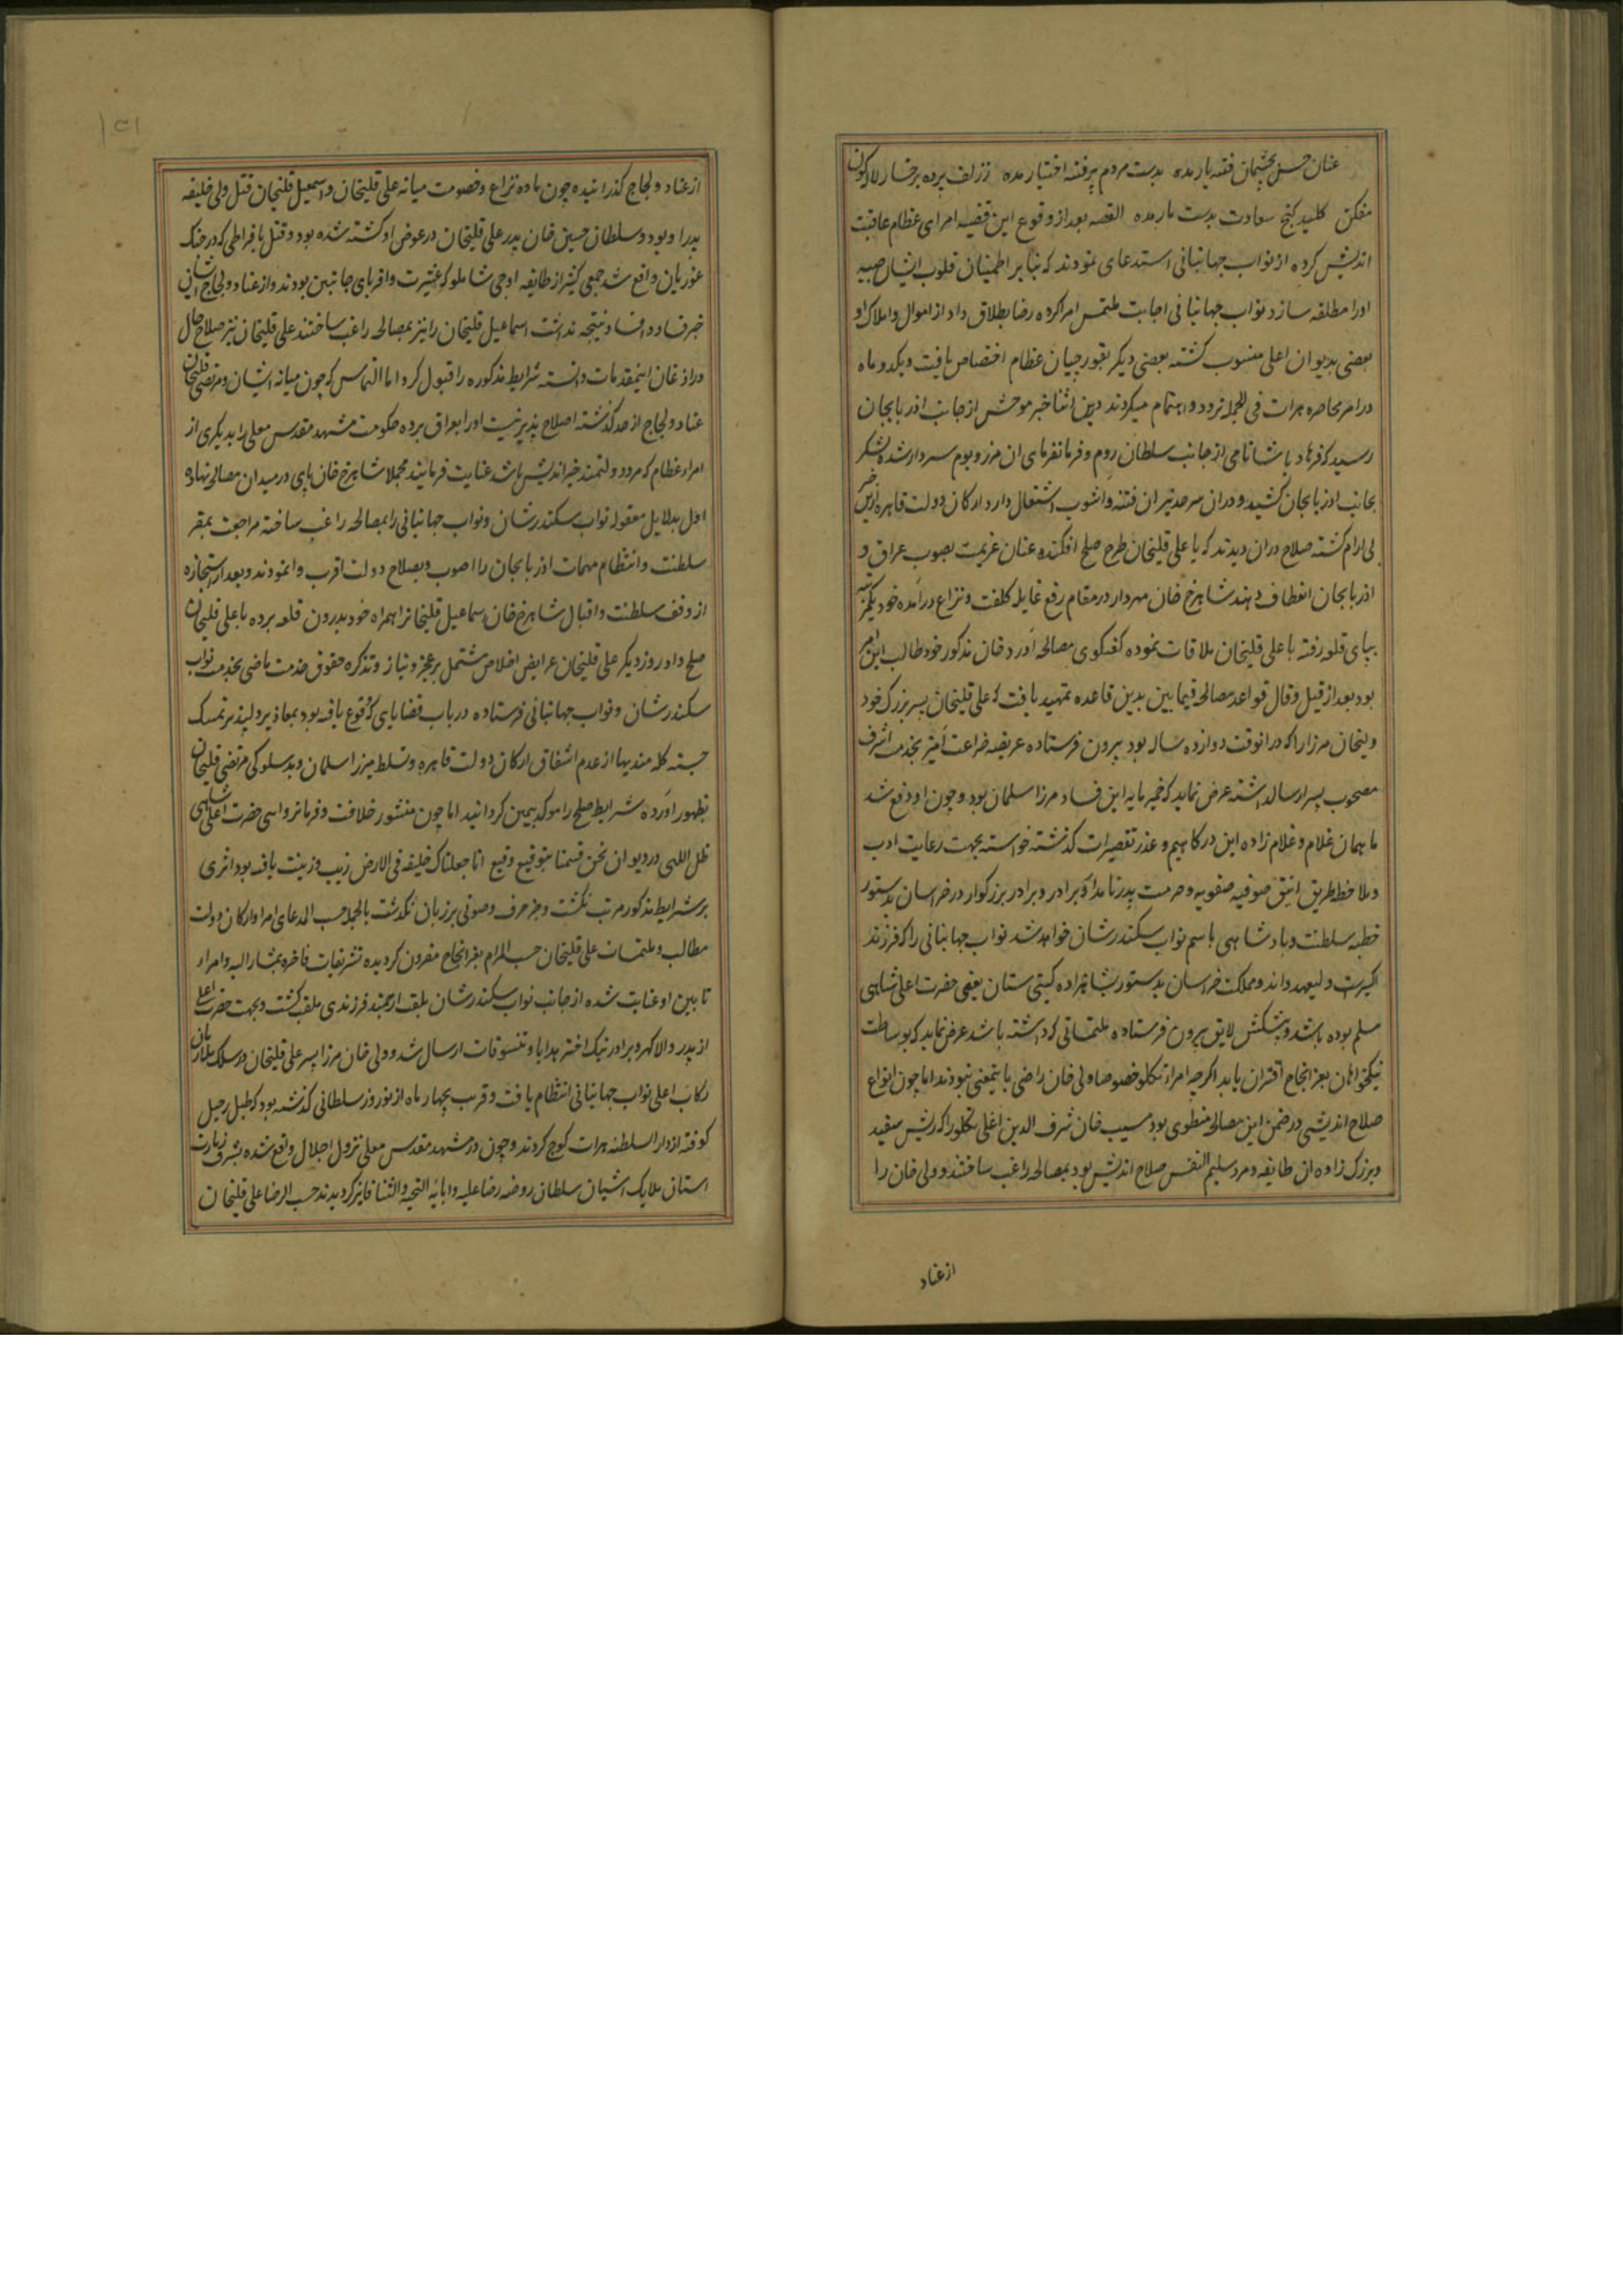 عنان حسن بچشمان فتنه بار مده بدست مردم پرفتنه اختیار مده ززلف پرده برخسار لاله کون
مفکن کلید کنج سعادت بدست مار مده القصه بعد از وقوع این قضیه امرای عظام عاقبت
اندیش کرده از نواب جهانبانی استدعای نمودند که بنابر اطمینان قلوب ایشان صبیه
اورا مطلقه سازد نواب جهانبانی اجابت ملتمس امرا کرده رضا بطلاق داد از اموال واملاک او
بعضی بدیوان اعلی منسوب کشته بعضی دیکر بقورچیان عظام اختصاص یافت ویکدو ماه
درامر محاصره هرات فی الجمله تردد واهتمام میکردند درین اثنا خبر موحش از جانب اذربایجان
رسید که فرهاد پاشا نامی از جانب سلطان روم وفرمانفرمای ان مرز وبوم سردار شده لشکر
بجانب اذربایجان کشید ودران سرحد نیران فتنه واشوب اشتعال دارد ارکان دولت قاهره ازین خبر
بی ارام کشته صلاح دران دیدند که با علی قلیخان طرح صلح افکنده عنان عزیمت بصوب عراق و
اذربایجان انعطاف دهند شاهرخ خان مهردار درمقام رفع غایله کلفت ونزاع درآمده خود یکمرتبه
بپای قلعه رفته با علی قلیخان ملاقات نموده کفتکوی مصالحه آورد خان مذکور خود طالب این امر
بود بعد از قیل وقال قواعد مصالحه فیمابین بدین قاعده تمهید یافت که علی قلیخان پسر بزرک خود
ولیخان مرزا را که درانوقت دوازده ساله بود بیرون فرستاده عریضه ضراعت آمیز بخدمت اشرف
مصحوب پسر ارسالداشته عرض نماید که خمیر مایه این فساد مرزا سلمان بود وچون او دفع شد
ما همان غلام وغلام زاده این درکاهیم وعذر تقصیرات کذشته خواسته بجهت رعایت ادب
وملاحظه طریق انیق صوفیه صفویه وحرمت پدر نامدار وبرادر بزرکوار درخراسان بدستور
خطبه سلطنت وپادشاهی باسم نواب سکندرشان خواهد شد نواب جهانبانی را که فرزند
اکبرست ولیعهد داند ومملکت خراسان بدستور بشاهزاده کیتی ستان یعنی حضرت اعلی شاهی
مسلم بوده باشد وپیشکش لایق بیرون فرستاده ملتمساتی که داشته باشد عرض نماید که بوساطت
نیکخواهان بعز انجاح اقتران یابد اکرچه امراء تکلو خصوصا ولی خان راضی باینمعنی نبودند اما چون انواع
صلاح اندیشی درضمن این مصالحه منطوی بود مسیب خان شرف الدین اغلی تکلو را که ریش سفید
وبزرک زاده ان طایفه ومرد سلیم النفس صلاح اندیش بود بمصالحه راغب ساختند وولی خان را
از عناد
از عناد ولجاج کذرانیده چون ماده نزاع وخصومت میانه علی قلیخان واسمعیل قلیخان قتل ولی خلیفه
پدر او بود وسلطان حسین خان پدر علی قلیخان درعوض او کشته شده بود وقتل بافراطی که درجنک
غوریان واقع شد جمعی کثیر از طایفه اوجی شاملو که عشیرت واقربای جانبین بودند واز عناد ولجاج ایشان
خبر فساد وافساد نتیجه نداشت اسماعیل قلیخان را نیز بمصالحه راغب ساختند علی قلیخان نیز صلاح حال
دراذعان اینمقدمات دانسته شرایط مذکوره را قبول کرد اما التماس که چون میانه ایشان ومرتضی قلیخان
عناد ولجاج از حد کذشته اصلاح پذیر نیست اورا بعراق برده حکومت مشهد مقدس معلی را بدیکری از
امراء عظام که مرد دولتمند خیراندیش باشد عنایت فرمایند مجملا شاهرخ خان پای درمیدان مصالحه نهاده
اول بدلایل معقوله نواب سکندرشان ونواب جهانبانی را بمصالحه راغب ساخته مراجعت بمقر
سلطنت وانتظام مهمات اذربایجان را اصوب وبصلاح دولت اقرب وانمودند وبعد از استجازه
از وقف سلطنت واقبال شاهرخ خان اسماعیل قلیخانرا همراه خود بدرون قلعه برده با علی قلیخان
صلح داد روز دیکر علی قلیخان عرایض اخلاص مشتمل بر عجز ونیاز وتذکره حقوق خدمت ماضی بخدمت نواب
سکندرشان ونواب جهانبانی فرستاده درباب قضایای که وقوع یافته بود بمعاذیر دلپذیر تمسک
جسته کله مندیها از عدم اشفاق ارکان دولت قاهره وتسلط میرزا سلمان وبدسلوکی مرتضی قلیخان
بظهور آورده شرایط صلح را موکد بیمین کردانید اما چون منشور خلافت وفرمانروایی حضرت اعلی شاهی
ظل اللهی دردیوان نحن قسمنا بتوقیع وقیع انا جعلناک خلیفه فی الارض زیب وزینت یافته بود اثری
بر شرایط مذکور مرتب نکشت وجز حرف وصوتی بر زبان نکذشت بالجمله حسب المدعای امرا وارکان دولت
مطالب وملتمسات علی قلیخان حسب المرام بعز انجاح مقرون کردیده تشریفات فاخره بمشار الیه وامراء
تابین او عنایت شده از جانب نواب سکندرشان بلقب ارجمند فرزندی ملقب کشت وبجهت حضرت اعلی
از پدر والا کهر وبرادر نیک اختر هدایا وتنسوقات ارسال شد وولی خان مرزا پسر علی قلیخان درسلک ملازمان
رکاب اعلی نواب جهانبانی انتظام یافت وقریب بچهار ماه از نوروز سلطانی کذشته بود که طبل رحیل
کوفته از دار السلطنه هرات کوچ کردند وچون درمشهد مقدس معلی نزول اجلال واقع شده بشرف زیارت
استان ملایک اشیان سلطان روضه رضا علیه وابائه التحیه والثنا فایز کردیدند حسب الرضا علی قلیخان